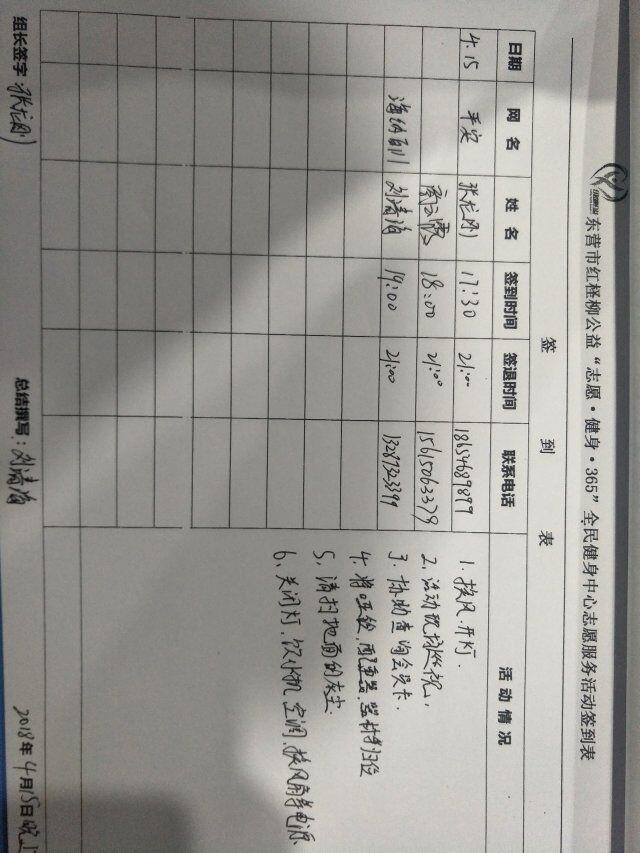 东营市红柽柳公益“志愿·健身·365”全民健身中心志愿服务活动签到表
签 到 表
日期 网名 姓名 签到时间 签退时间 联系电话 活动情况
4.15 平安 张龙刚 17:30 21:00 18654689899
18:00 21:00 15615063379
海纳百川 刘清海 19:00 21:00 13287323399
1、换风、开灯.
2、活动现场巡视.
3、协助查询会员卡.
4、将哑铃、配重器、器材归位
5、清扫地面的灰尘.
6、关闭灯、饮水机、空调、换风扇等电源.
组长签字:张龙刚 总结撰写:刘清海 2018年4月15日晚上